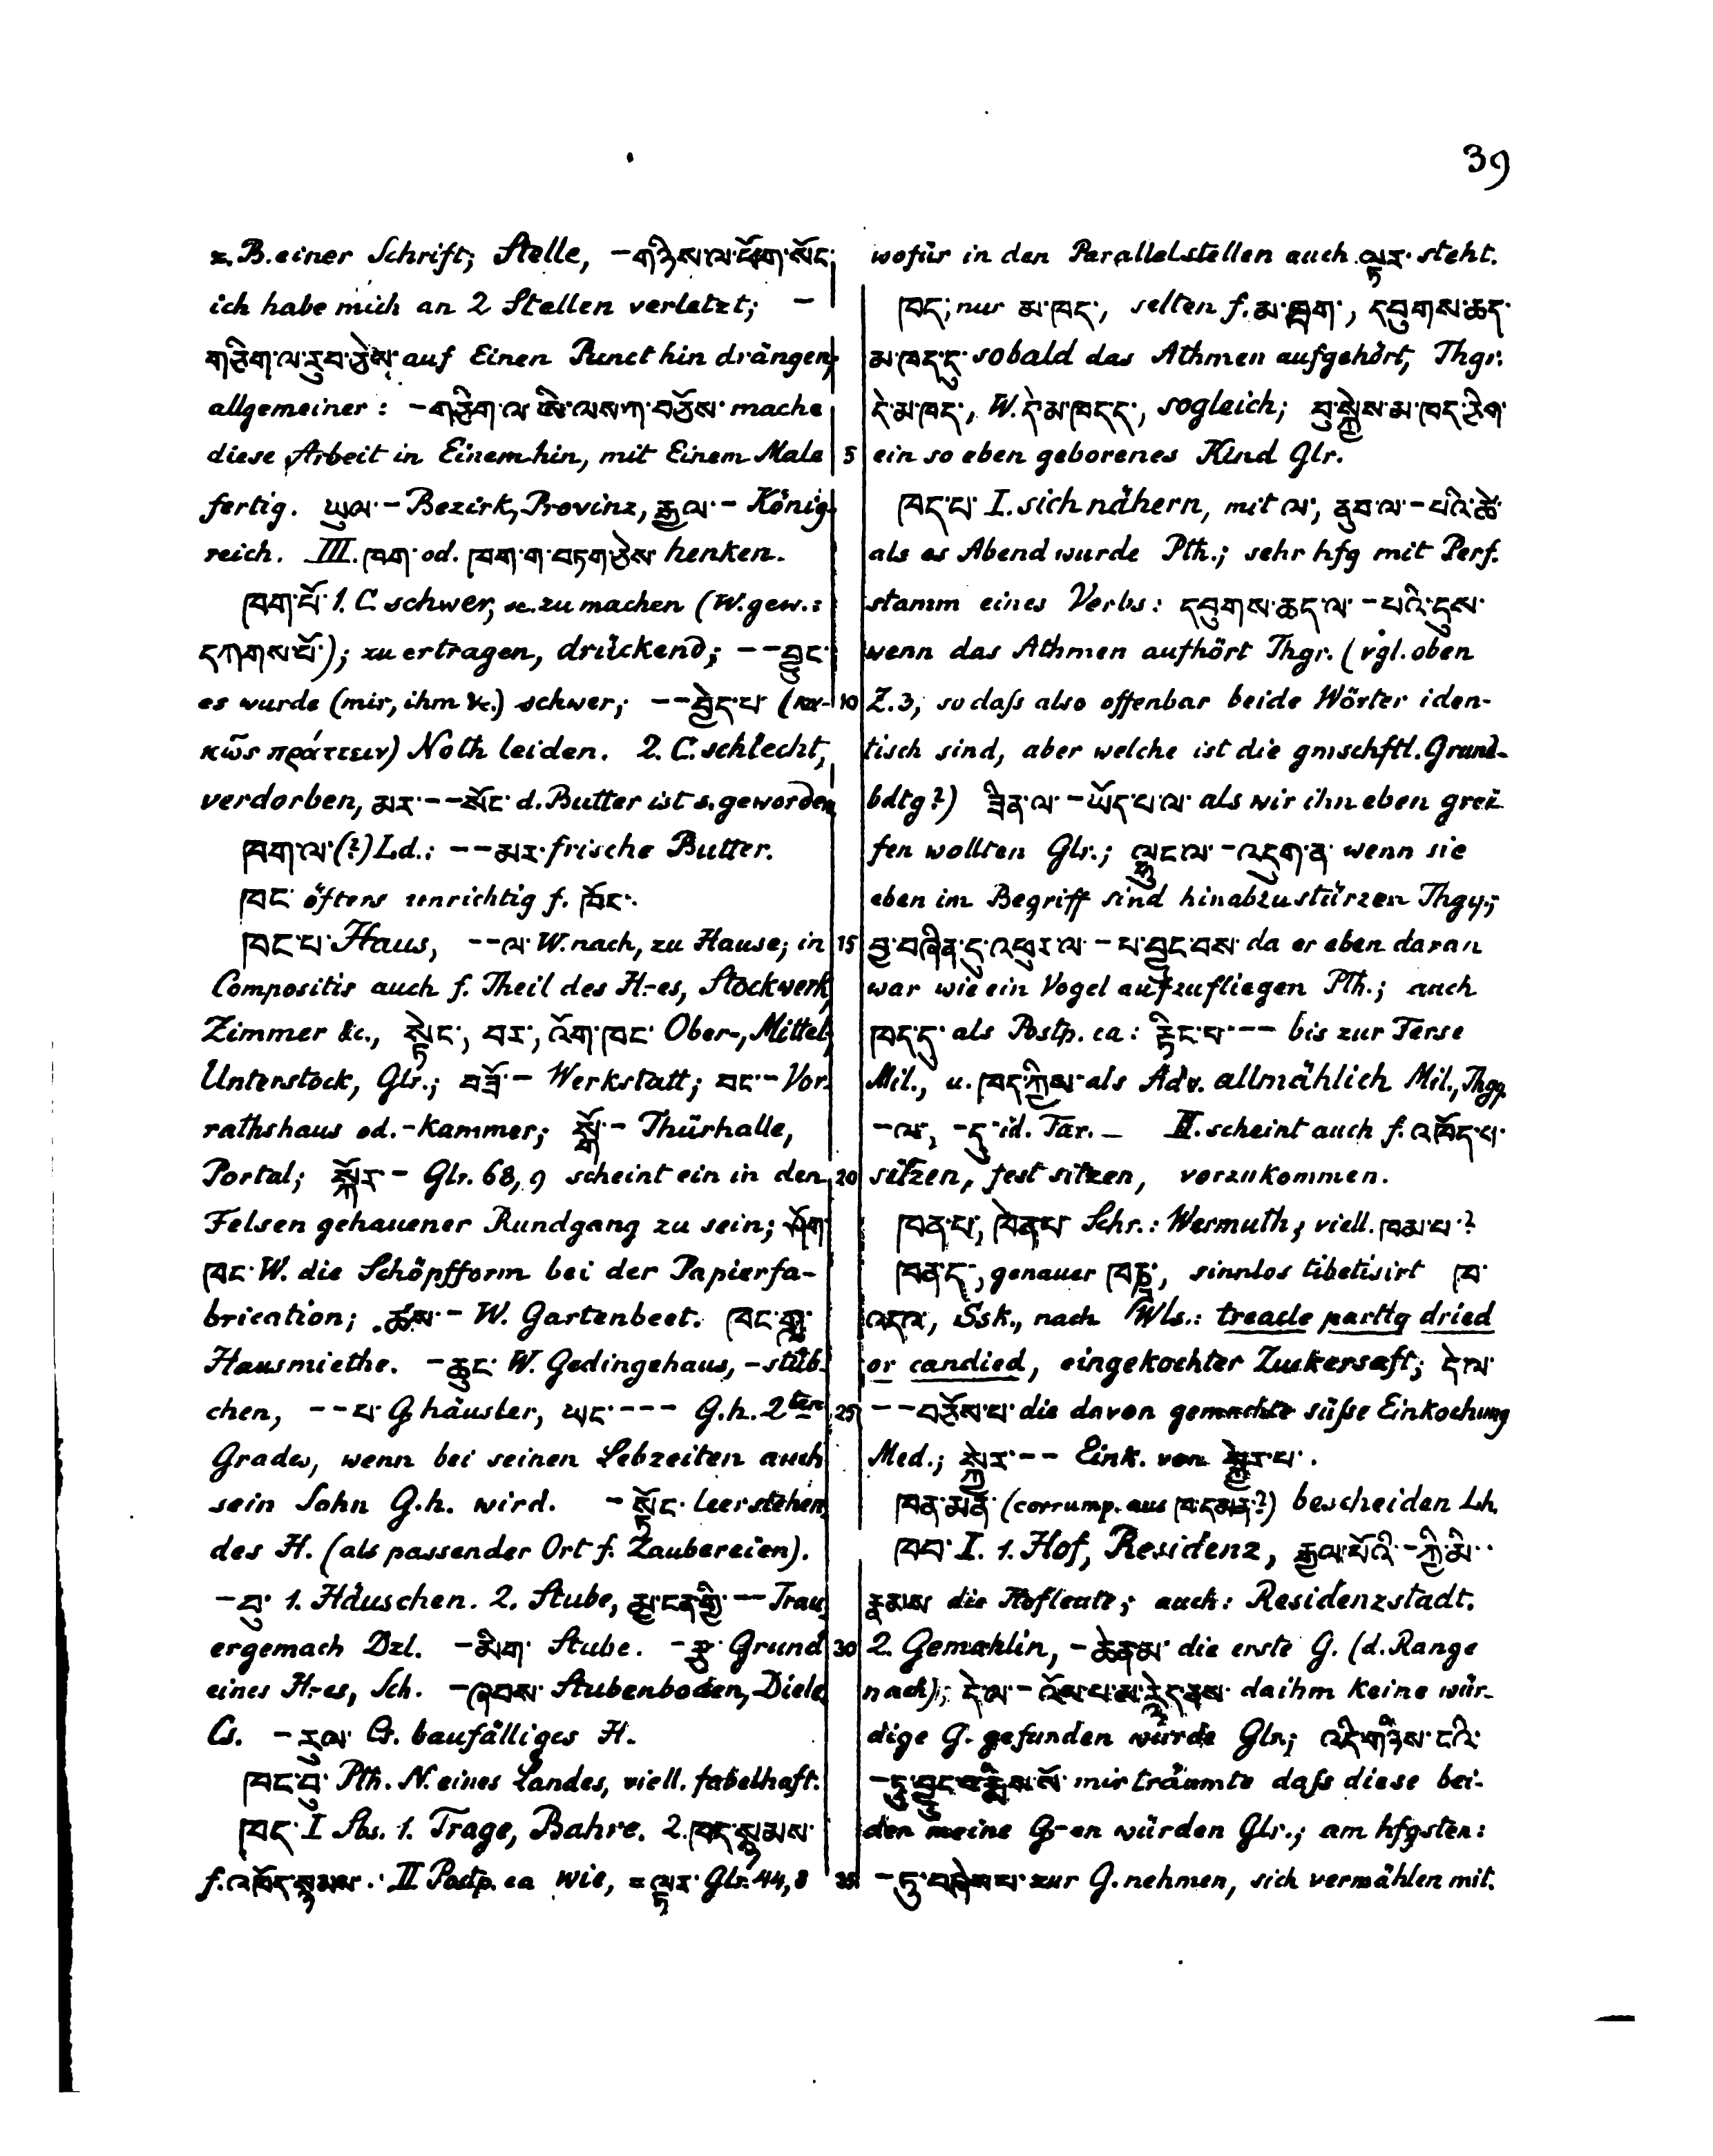 39
z. B. einer Schrift; Stelle, –གཉིས་ལ་ཕོག་སོང་
ich habe mich an 2 Stellen verletzt; –
གཅིག་ལ་རུབ་ཅེས་ auf Einen Punct hin drängen,
allgemeiner: –གཅིག་ལ་ ལས་ཀ་བཅོས་ mache
diese Arbeit in Einem hin, mit Einem Male
fertig. ཡུལ་– Bezirk, Provinz, རྒྱལ་– König-
reich. III. ཁག་ od. ཁག་ག་བཏག་ཅེས་ henken.
ཁག་པོ་ 1. C. schwer, sc. zu machen (W. gew.:
དཀགས་པོ་); zu ertragen, drückend; – –བྱུང་
es wurde (mir, ihm &c.) schwer; – –བྱེད་པ་ (κα-
κῶς πράττειν) Noth leiden. 2. C. schlecht,
verdorben, མར་– –སོང་ d. Butter ist s. geworden
ཁག་ལ་ (?) Ld.: – –མར་ frische Butter.
ཁང་ öfters unrichtig f. ཁོང་.
ཁང་པ་ Haus, – –ལ་ W. nach, zu Hause; in
Compositis auch f. Theil des H-es, Stockwerk,
Zimmer &c., སྟེང་, བར་, འོག་ཁང་ Ober-, Mittel-,
Unterstock, Glr.; བཟོ་– Werkstatt; བང་– Vor-
rathshaus od. -kammer; སྒོ་– Thürhalle,
Portal; སྐོར་– Glr. 68, 9 scheint ein in den
Felsen gehauener Rundgang zu sein; ཤོག་
ཁང་ W. die Schöpfform bei der Papierfa-
brication; ཚས་– W. Gartenbeet. ཁང་གླ་
Hausmiethe. –ཆུང་ W. Gedingehaus, -stüb-
chen, – –པ་ G. häusler, ཡང་– – – G.h. 2ten
Grades, wenn bei seinen Lebzeiten auch
sein Sohn G.h. wird. –སྟོང་ leerstehen,
des H. (als passender Ort f. Zaubereien).
–བུ་ 1. Häuschen. 2. Stube, མྱ་ངན་གྱི་– – Trau-
ergemach Dzl. –མིག་ Stube. –རྩ་ Grund
eines H-es, Sch. –ཞབས་ Stubenboden, Diele
Cs. –རུལ་ Cs. baufälliges H.
ཁང་བུ་ Pth. N. eines Landes, viell. fabelhaft.
ཁད་ I Sbs. 1. Trage, Bahre. 2. ཁད་སྙམས་
f. འཁོད་སྙམས་. II Postp. ca wie, = ལྟར་ Glr. 44, 8
wofür in den Parallelstellen auch ལྟར་ steht.
ཁད་; nur མ་ཁད་, selten f. མ་ཐག་, དབུགས་ཆད་
མ་ཁད་དུ་ sobald das Athmen aufgehört, Thgr.
དེ་མ་ཁད་, W. དེ་མ་ཁདད་, sogleich; བུ་སྐྱེས་མ་ཁད་ཅིག་
5 ein so eben geborenes Kind Glr.
ཁད་པ་ I. sich nähern, mit ལ་, ནུབ་ལ་–པའི་ཚེ་
als es Abend wurde Pth.; sehr hfg mit Perf.
stamm eines Verbs: དབུགས་ཆད་ལ་–པའི་དུས་
wenn das Athmen aufhört Thgr. (vgl. oben
10 Z. 3, so daſs also offenbar beide Wörter iden-
tisch sind, aber welche ist die gmschftl. Grund-
bdtg?) ཟིན་ལ་–ཡོད་པ་ལ་ als wir ihn eben grei-
fen wollten Glr.; ལྷུང་ལ་–འདུག་ན་ wenn sie
eben im Begriff sind hinabzustürzen Thgy.;
15 བྱ་བཞིན་དུ་འཕུར་ལ་–པ་བྱུང་བས་ da er eben daran
war wie ein Vogel aufzufliegen Pth.; auch
ཁད་དུ་ als Postp. ca: རྟིང་པ་– – bis zur Ferse
Mil., u. ཁད་ཀྱིས་ als Adv. allmählich Mil., Thgy.
–ལ་, –དུ་ id. Tar. – II. scheint auch f. འཁོད་པ་
20 sitzen, fest sitzen, vorzukommen.
ཁན་པ་, ཁེན་པ་ Schr.: Wermuth; viell. ཁམ་པ་?
ཁན་ད་, genauer ཁཎྜ་, sinnlos tibetisirt ཁ་
འདའ་, Ssk., nach Wls.: treacle partly dried
or candied, eingekochter Zuckersaft; དེ་ལ་
25 – –བཅོས་པ་ die davon gemachte süſse Einkochung
Med.; སྐྱེར་– – Eink. von སྐྱེར་པ་.
ཁན་མན་ (corrump. aus ཁ་དམན་?) bescheiden Lh.
ཁབ་ I. 1. Hof, Residenz, རྒྱལ་པོའི་–ཀྱི་མི་
རྣམས་ die Hofleute; auch: Residenzstadt.
30 2. Gemahlin, –ཆེན་མ་ die erste G. (d. Range
nach); དེ་ལ་–འོས་པ་མ་རྙེད་ནས་ da ihm keine wür-
dige G. gefunden wurde Glr.; འདི་གཉིས་ངའི་
–ཏུ་བྱུང་བ་རྨིས་སོ་ mir träumte daſs diese bei-
den meine G-en würden Glr.; am hfgsten:
35 –ཏུ་བཞེས་པ་ zur G. nehmen, sich vermählen mit.